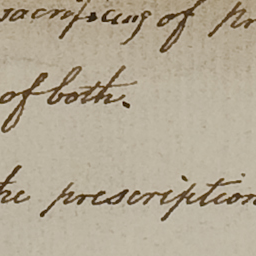 sacrificing of pr
of both.
he prescription